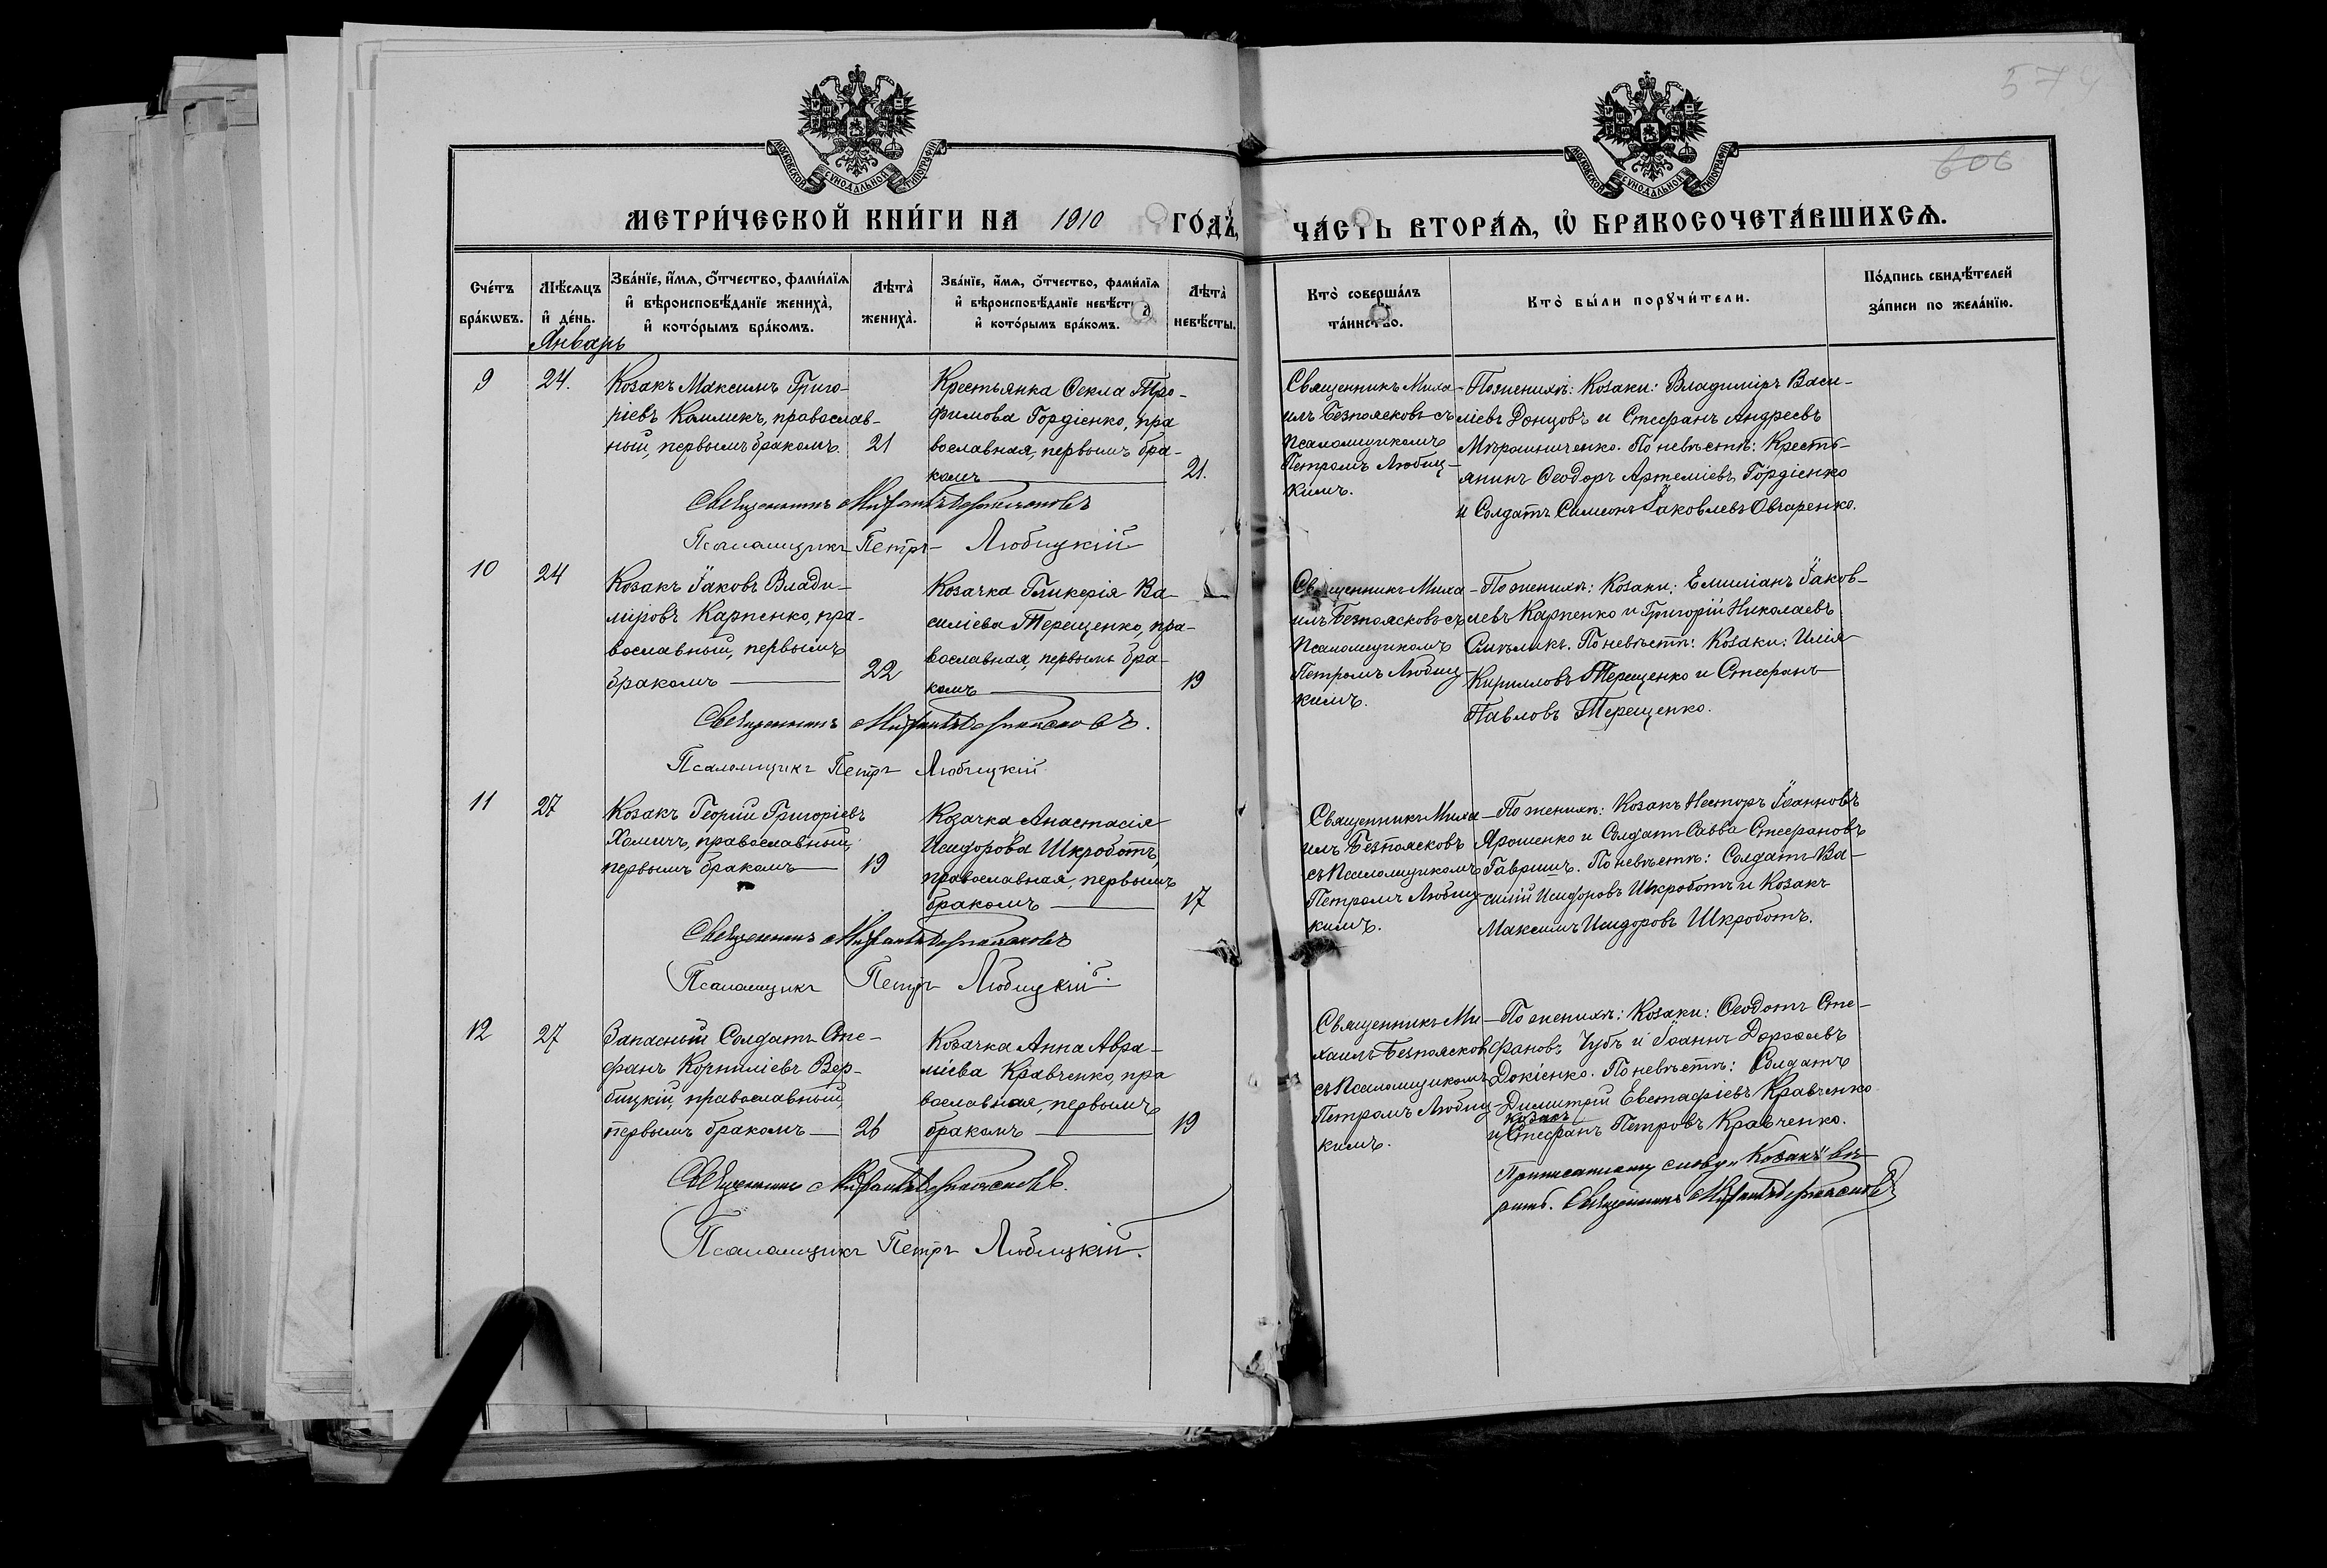 579
606
МОСКОВСКОЙ СѴНОДАЛЬНОЙ ТИПОГРАФІИ
МОСКОВСКОЙ СѴНОДАЛЬНОЙ ТИПОГРАФІИ
МЕТРИ́ЧЕСКОЙ КНИ́ГИ НА 1910 ГО́ДЪ,
ЧА́СТЬ ВТОРА́Ѧ, Ѡ҆ БРАКОСОЧЕТА́ВШИХСѦ.
Сче́тъ бра́кѡвъ.
Мѣ́сяцъ и҆ де́нь.
Зва́нїе, и҆́мѧ, ѻ҆́тчество, фами́лїѧ
и҆ вѣроисповѣ́данїе жениха̀,
и҆ кото́рымъ бра́комъ.
Лѣта̀ жениха̀.
Зва́нїе, и҆́мѧ, ѻ҆́тчество, фами́лїѧ
и҆ вѣроисповѣ́данїе невѣ́сты
и҆ кото́рымъ бра́комъ.
Лѣта̀ невѣ́сты.
Кто̀ соверша́лъ та́инство.
Кто̀ бы́ли порꙋчи́тели.
По́дпись свидѣ́телей за́писи по жела́нїю.
Январь
9
24.
Козакъ Максимъ Григо-
ріевъ Калликъ, православ-
ный, первымъ бракомъ.
21
Крестьянка Ѳекла Тро-
фимова Гордіенко, пра
вославная, первымъ бра-
комъ
21.
Священникъ Миха-
илъ Безпоясковъ съ
псаломщикомъ
Петромъ Любиц-
кимъ.
По женихѣ: Козаки: Владиміръ Васи-
ліевъ Донцовъ и Стефанъ Андреевъ
Мирошниченко. По невѣстѣ: Кресть-
янинъ Ѳеодоръ Артеміевъ Гордіенко
и Солдатъ Симеонъ Іаковлевъ Овчаренко.
Священникъ Михаилъ Безпоясковъ
Псаломщикъ Петръ Любицкій
10
24
Козакъ Іаковъ Влади-
міровъ Карпенко, пра-
вославный, первымъ
бракомъ
22
Козачка Гликерія Ва-
силіева Терещенко, пра-
вославная, первымъ бра-
комъ
19
Священникъ Миха-
илъ Безпоясковъ съ
псаломщикомъ
Петромъ Любиц-
кимъ.
По женихѣ: Козаки: Емиліанъ Іаков-
левъ Карпенко и Григорій Николаевъ
По невѣстѣ: Козаки: Илія
Кирилловъ Терещенко и Стефанъ
Павловъ Терещенко.
Священникъ Михаилъ Безпоясковъ.
Псаломщикъ Петръ Любицкій
11
27
Козакъ Георгій Григоріевъ
Хомичъ, православный,
первымъ бракомъ
19
Козачка Анастасія
Исидорова Шкроботъ,
православная, первымъ
бракомъ
17
Священникъ Миха-
илъ Безпоясковъ
съ псаломщикомъ
Петромъ Любиц-
кимъ.
По женихѣ: Козакъ Несторъ Іоанновъ
Ярошенко и Солдатъ Савва Стефановъ
Гавришъ. По невѣстѣ: Солдатъ Ва-
силій Исидоровъ Шкроботъ и Козакъ
Максимъ Исидоровъ Шкроботъ.
Священникъ Михаилъ Безпоясковъ
Псаломщикъ Петръ Любицкій.
12
27
Запасный Солдатъ Сте-
фанъ Корниліевъ Вер-
бицкій, православный,
первымъ бракомъ
26
Козачка Анна Авра-
міева Кравченко, пра
вославная, первымъ
бракомъ
19
Священникъ Ми-
хаилъ Безпоясковъ
съ псаломщикомъ
Петромъ Любиц-
кимъ.
По женихѣ: Козаки: Ѳеодотъ Сте-
фановъ Чубъ и Іоаннъ Дороѳеевъ
Докіенко. По невѣстѣ: Солдатъ
Димитрій Евстафіевъ Кравченко
козакъ
и Стефанъ Петровъ Кравченко.
Приписанному слову „Козакъ" вѣ-
рить. Священникъ Михаилъ Безпоясковъ
Священникъ Михаилъ Безпоясковъ.
Псаломщикъ Петръ Любицкій.